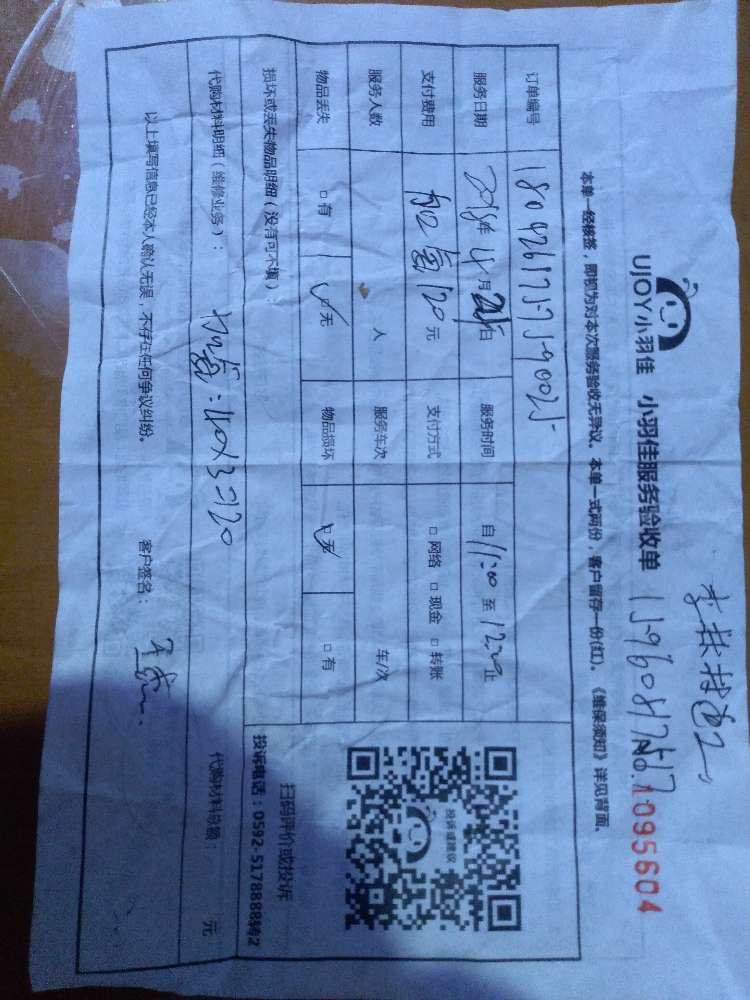 UJOY小羽佳 小羽佳服务验收单 15960817517 No.1095604
本单一经核签，即视为对本次服务验收无异议。本单一式两份，客户留存一份(红)。《维保须知》详见背面。
订单编号
服务日期 2018年 月 日 服务时间 自 11:30 至 12:20 止
支付费用 加氟120元 支付方式 □网络 □现金 □转账
服务人数 人 服务车次 车/次
物品丢失 □有 ☑无 物品损坏 ☑无 □有
投诉或建议
扫码评价或投诉
投诉电话：0592-5178888转2
损坏或丢失物品明细（没有可不填）：
代购材料明细（维修业务）： 代购材料总额 元
加氟：40×3=120
以上填写信息已经本人确认无误，不存在任何争议纠纷。 客户签名：